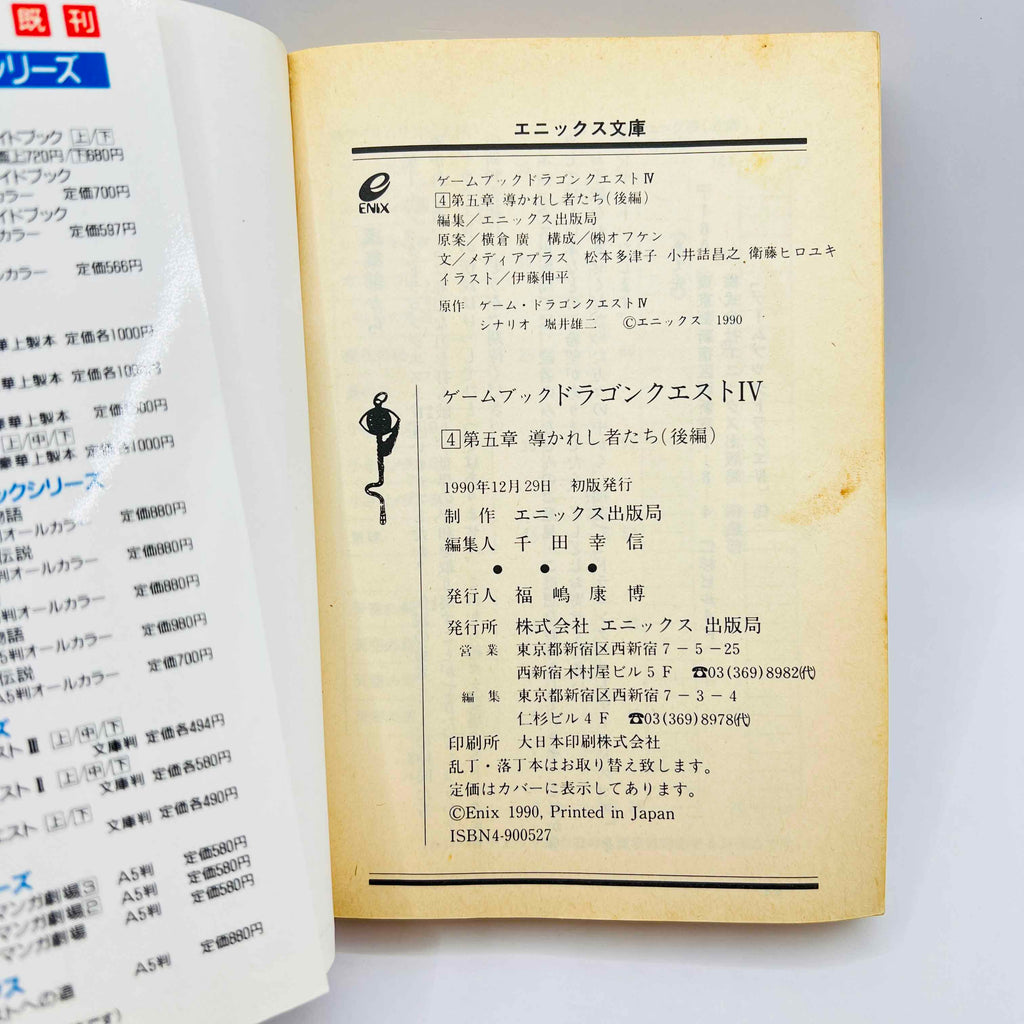 既刊
シリーズ
イドブック 上/下
上720円/下680円
イドブック
カラー 定価700円
イドブック
カラー 定価597円
ルカラー 定価566円
華上製本 定価各1000円
華上製本 定価各1000円
豪華上製本
上/中/下
豪華上製本 定価各1000円
ックシリーズ
物語 定価880円
判オールカラー
伝説 定価880円
判オールカラー
定価880円
判オールカラー
物語 定価980円
5判オールカラー
伝説 定価700円
A5判オールカラー
ーズ
スト Ⅲ 上/中/下
文庫判 定価各494円
スト Ⅱ 上/中/下
文庫判 定価各580円
エスト 上/下
文庫判 定価各490円
ーズ
マンガ劇場3 A5判 定価580円
マンガ劇場2 A5判 定価580円
マンガ劇場 A5判 定価580円
ストへの道 A5判 定価880円
エニックス文庫
ENIX
ゲームブックドラゴンクエストⅣ
4第五章 導かれし者たち(後編)
編集/エニックス出版局
原案/横倉 廣 構成/㈱オフケン
文/メディアプラス 松本多津子 小井詰昌之 衛藤ヒロユキ
イラスト/伊藤伸平
原作 ゲーム・ドラゴンクエストⅣ
シナリオ 堀井雄二 ©エニックス 1990
ゲームブックドラゴンクエストⅣ
4第五章 導かれし者たち(後編)
1990年12月29日 初版発行
制作 エニックス出版局
編集人 千田幸信
● ● ●
発行人 福嶋康博
発行所 株式会社 エニックス 出版局
営業 東京都新宿区西新宿7-5-25
西新宿木村屋ビル5F ☎03(369)8982㈹
編集 東京都新宿区西新宿7-3-4
仁杉ビル4F ☎03(369)8978㈹
印刷所 大日本印刷株式会社
乱丁・落丁本はお取り替え致します。
定価はカバーに表示してあります。
©Enix 1990, Printed in Japan
ISBN4-900527